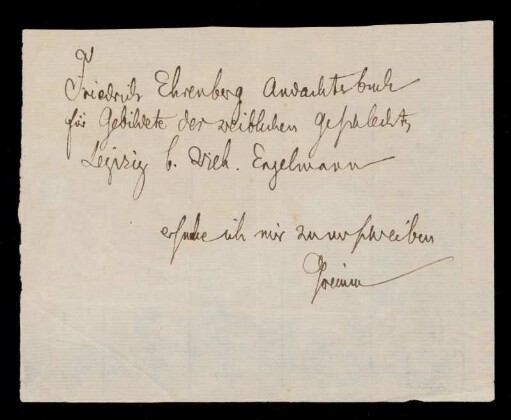 Friedrich Ehrenberg Andachtsbuch
für Gebildete des weiblichen Geschlechts,
Leipzig b. Wilh. Engelmann
ersuche ich mir zu verschreiben
Grimm